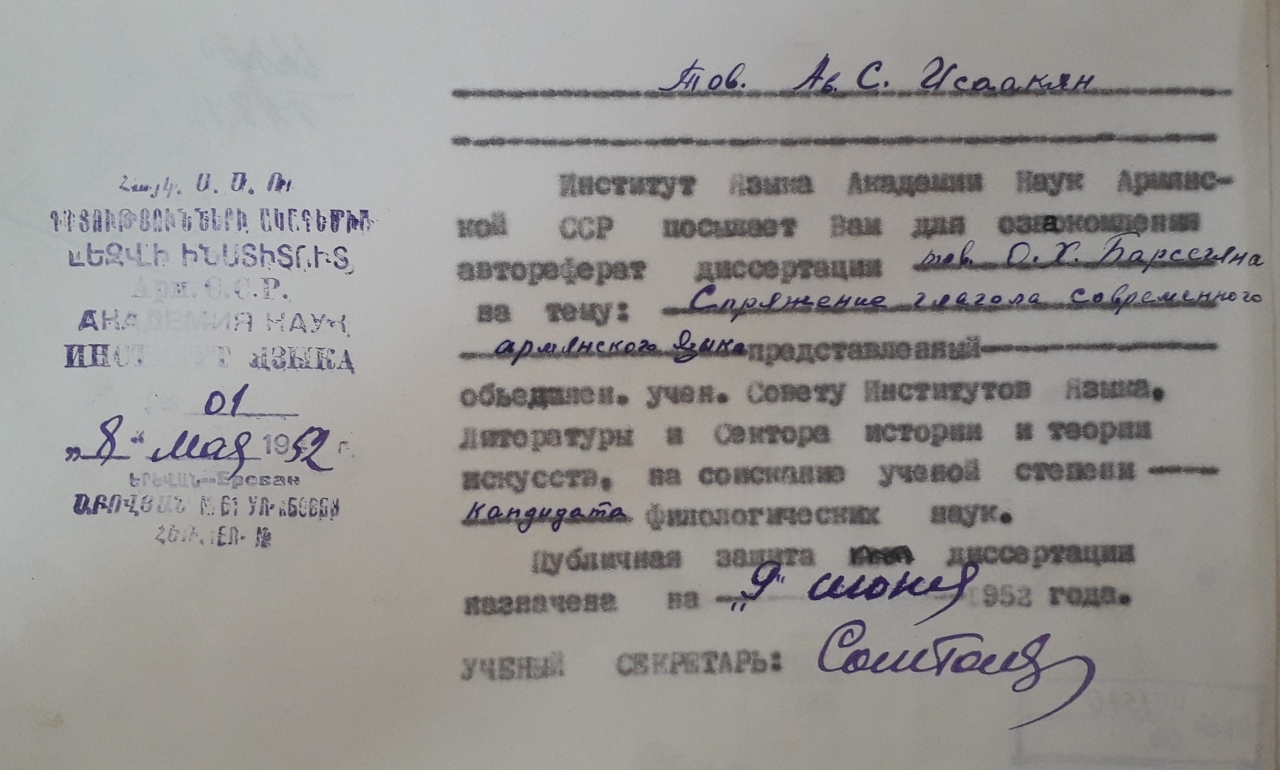 Тов. Ав. С. Исаакян
Институт Языка Академии Наук Армянс-
кой ССР посылает Вам для ознакомления
автореферат диссертации тов. О. Х. Барсегяна
на тему: Спряжение глагола современного
армянского языка представленный
объединен. учен. Совету Институтов Языка,
Литературы и Сектора истории и теории
искусств, на соискание ученой степени
кандидата филологических наук.
Публичная защита диссертации
назначена на "9" июня 1952 года.
УЧЕНЫЙ СЕКРЕТАРЬ:
Հայկ. Ս. Ս. Ռ.
ԳԻՏՈՒԹՅՈՒՆՆԵՐԻ ԱԿԱԴԵՄԻԱ
ԼԵԶՎԻ ԻՆՍՏԻՏՈՒՏ
Арм. С.С.Р.
АКАДЕМИЯ НАУК
ИНСТИТУТ ЯЗЫКА
01
„8" мая 1952 г.
ԵՐԵՎԱՆ—Ереван
ԱԲՈՎՅԱՆ № 61 УЛ. АБОВЯН
ՀԵՌ. ТЕЛ. №